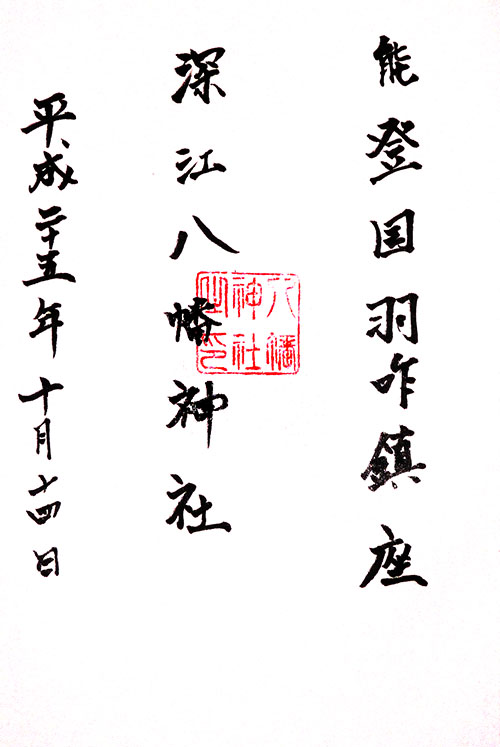 能登国羽咋鎮座
深江八幡神社
八幡
神社
之印
平成二十五年十月十四日